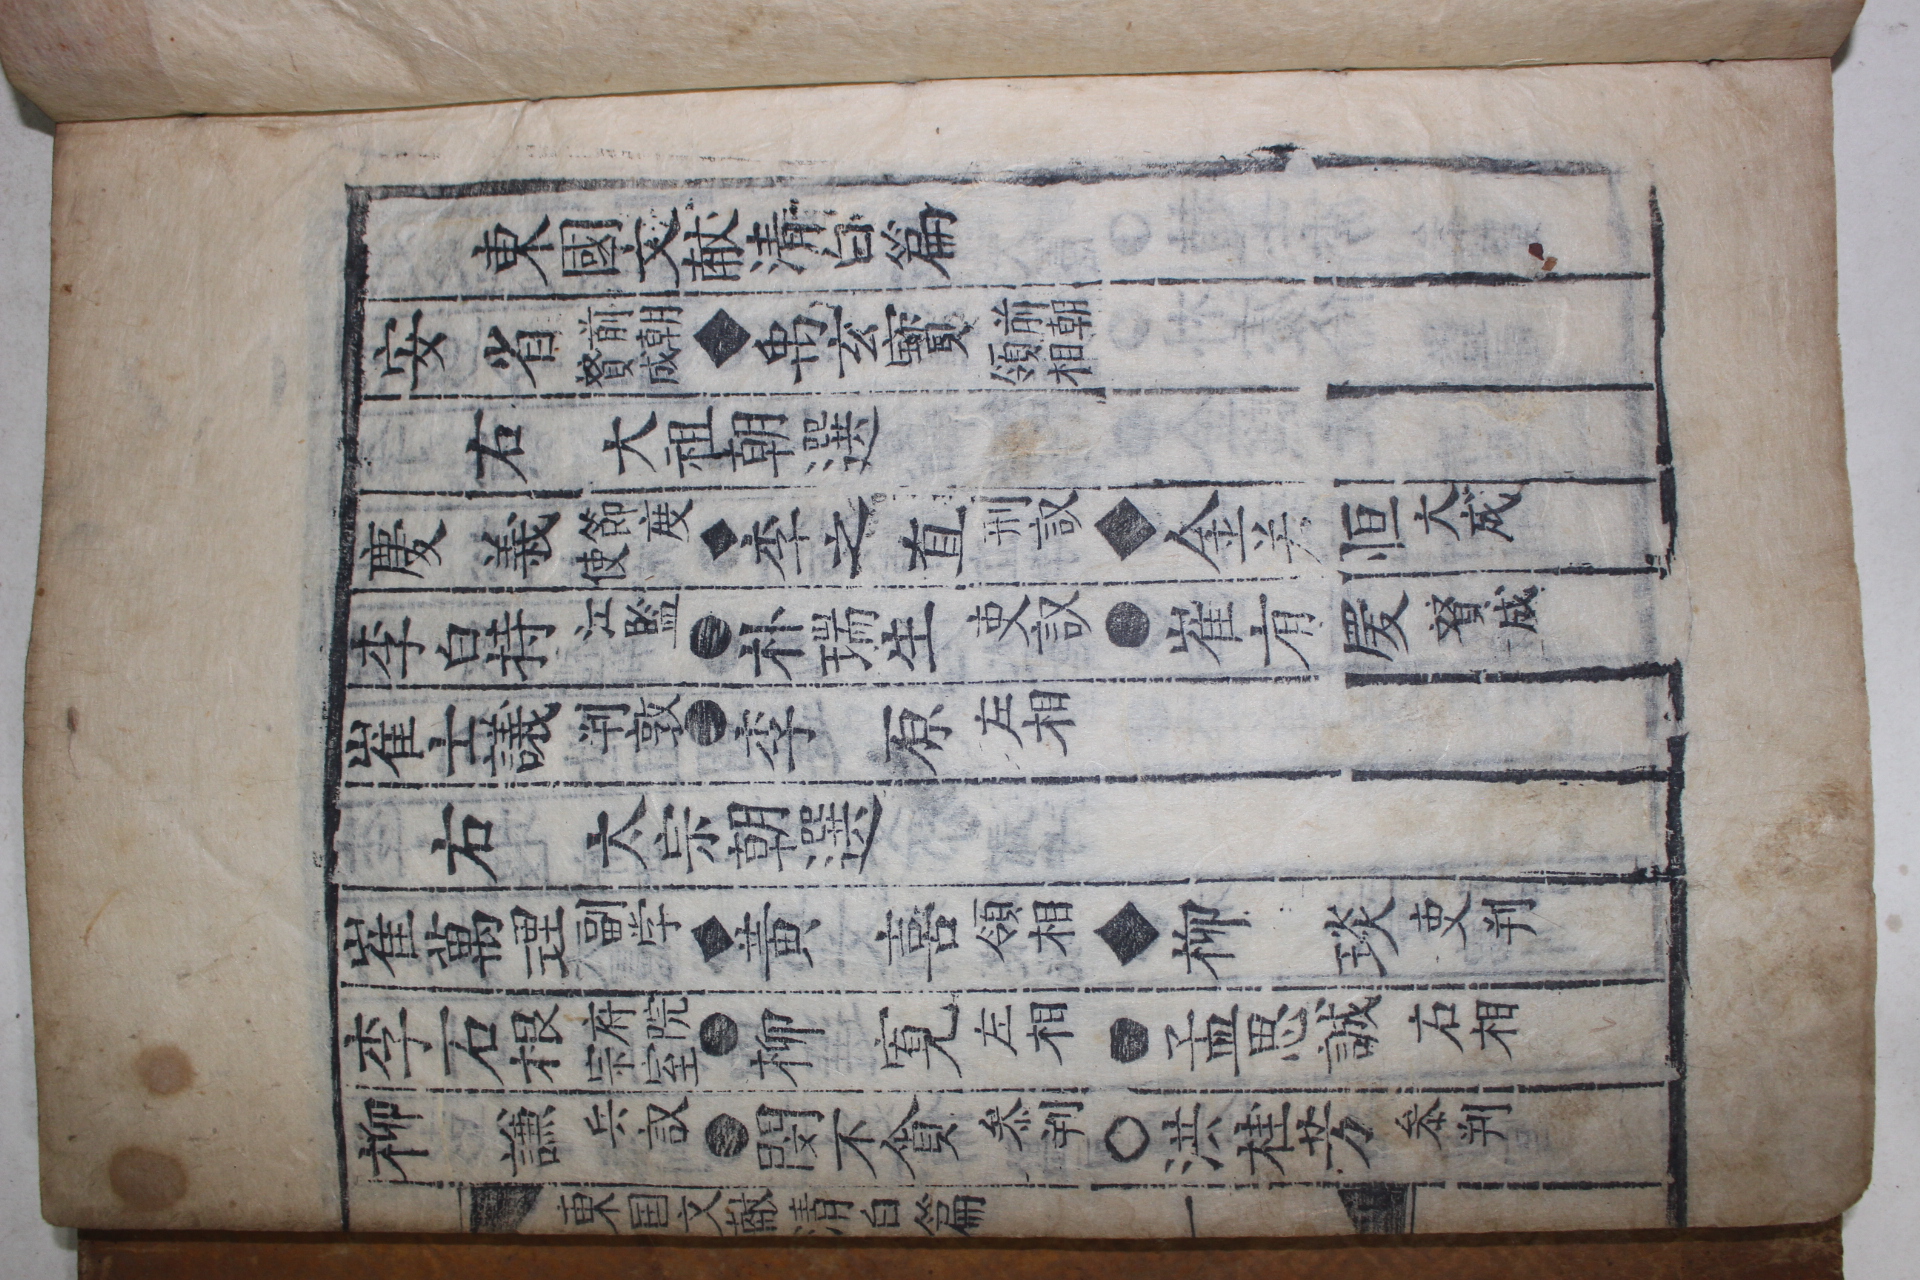 東國文献清白篇
安省 前朝賛成 ◆ 禹玄寳 前朝領相
右 大祖朝選
慶義 節度使 ◆ 李之直 刑议 ◆ 金若恒 大成
李白持 江監 ● 朴瑞生 吏议 ● 崔有慶 賛成
崔士議 判敦 ● 李原 左相
右 太宗朝選
崔萬理 副学 ◆ 黃喜 領相 ◆ 柳琰 吏判
李石根 府院宗室 ● 柳寬 左相 ● 孟思誠 右相
柳謙 兵议 ● 閔不貪 叅判 ◇ 洪桂芳 叅判
東国文献清白篇 一